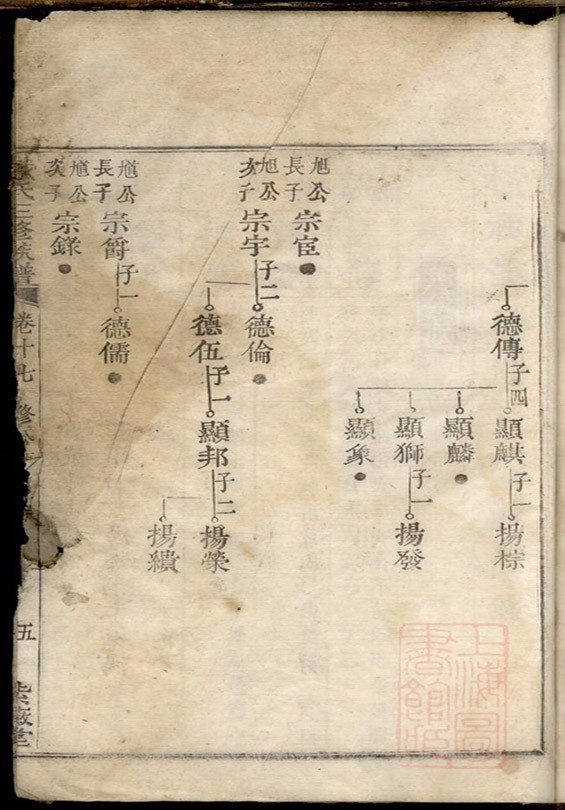 德傳 子四
顯麒 子一
揚粽
顯麟
顯獅 子一
揚發
顯象
旭公長子 宗宦
旭公次子 宗宇 子二
德倫
德伍 子一
顯邦 子二
揚榮
揚繢
馗公長子 宗爵 子一
德儒
馗公次子 宗錄
氏三修族譜
卷十七
五
紫薇堂
上海圖書館藏